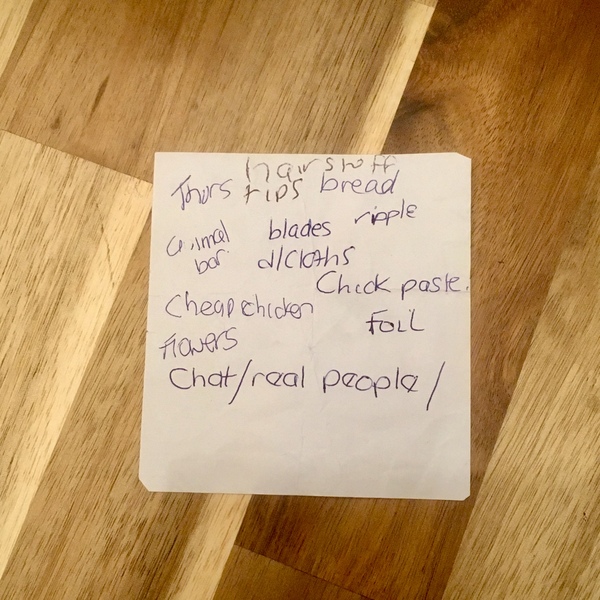 hair stuff
Thurs tips bread
blades ripple
bar d/cloths
Chick paste.
Cheap chicken
Foil
Flowers
Chat/real people/